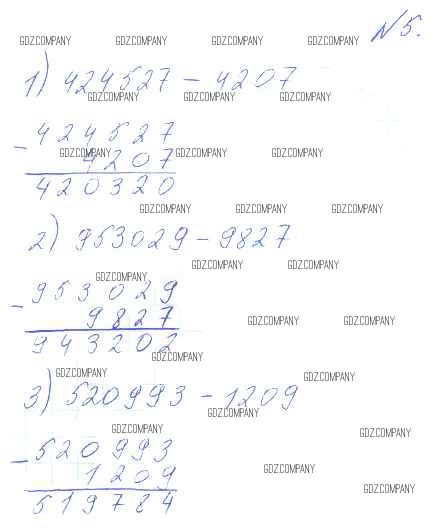 №5.
GDZ.COMPANY GDZ.COMPANY GDZ.COMPANY GDZ.COMPANY
1) 424527 - 4207
GDZ.COMPANY GDZ.COMPANY GDZ.COMPANY
- 424527
GDZ.COMPANY GDZ.COMPANY GDZ.COMPANY
4207
420320
GDZ.COMPANY GDZ.COMPANY GDZ.COMPANY
2) 953029 - 9827
GDZ.COMPANY GDZ.COMPANY
GDZ.COMPANY
- 953029
9827
GDZ.COMPANY GDZ.COMPANY
943202
GDZ.COMPANY
GDZ.COMPANY GDZ.COMPANY
3) 520993 - 1209
GDZ.COMPANY
GDZ.COMPANY GDZ.COMPANY
- 520993
GDZ.COMPANY
1209
GDZ.COMPANY
519784